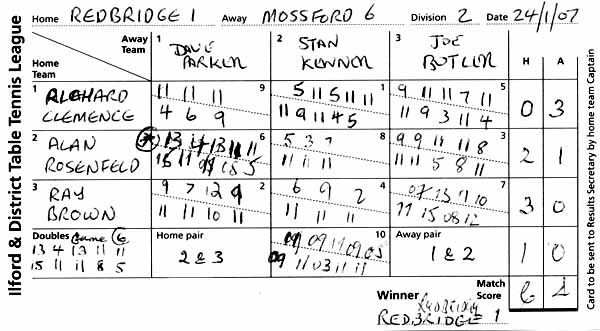 Ilford & District Table Tennis League
Home REDBRIDGE 1 Away MOSSFORD 6 Division 2 Date 24/1/07
Away Team 1 DAVE PARKER 2 STAN KENNER 3 JOE BUTLER H A
Home Team
1 RICHARD CLEMENCE
11 11 11 9
4 6 9
5 11 5 11 11 1
11 9 11 4 5
9 11 11 7 11 5
11 9 3 11 4
0 3
2 ALAN ROSENFELD
13 4 13 11 11 6
15 11 11 5
5 3 7 8
11 11 11
9 9 11 11 8 3
11 11 5 8 11
2 1
3 RAY BROWN
9 7 12 9 2
11 11 10 11
6 9 2 4
11 11 11
07 13 7 10 7
11 15 08 12
3 0
Doubles Game 6
13 4 13 11 11
15 11 11 8 5
Home pair
2 & 3
10
09 11 09 05
09 11 03 11 11
Away pair
1 & 2
1 0
Winner REDBRIDGE 1
Match Score 6 4
Card to be sent to Results Secretary by home team Captain